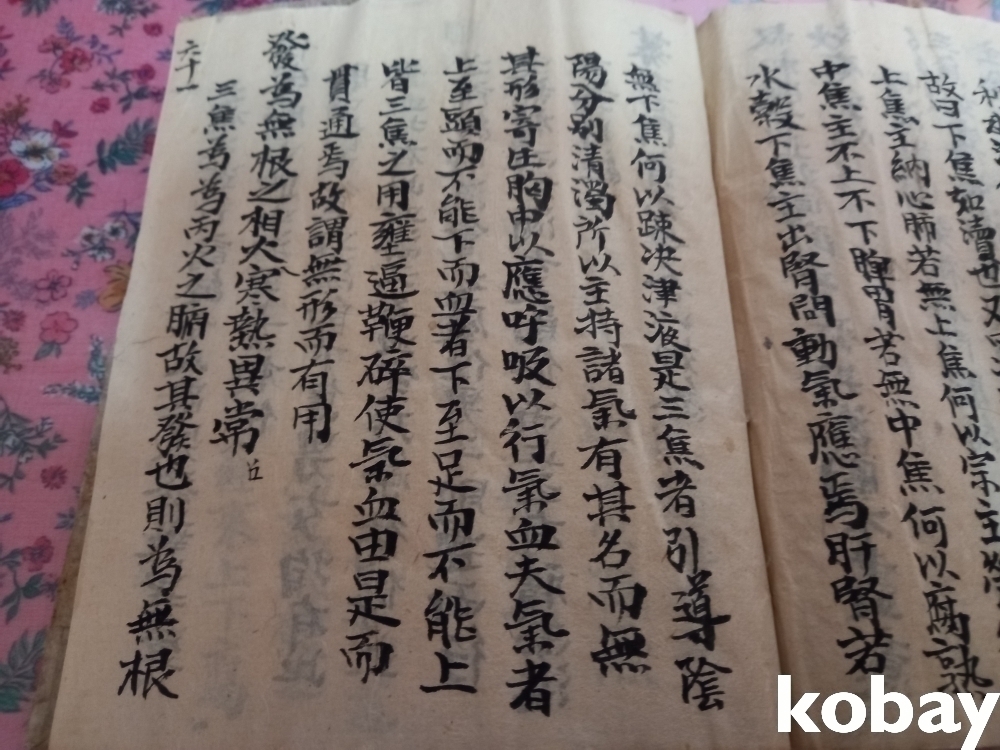 故曰下焦如瀆也又
上焦主納心肺若無上焦何以宗主
中焦主不上不下脾胃若無中焦何以腐熟
水穀下焦主出腎間動氣應焉肝腎若
無下焦何以踈決津液是三焦者引導陰
陽分別清濁所以主持諸氣有其名而無
其形寄在胸中以應呼吸以行氣血夫氣者
上至頭而不能下而血者下至足而不能上
皆三焦之用壅逼鞭碎使氣血由是而
貫通焉故謂無形而有用
發為無根之相火寒熱異常
六十一
三焦為為丙火之腑故其發也則為無根
kobay